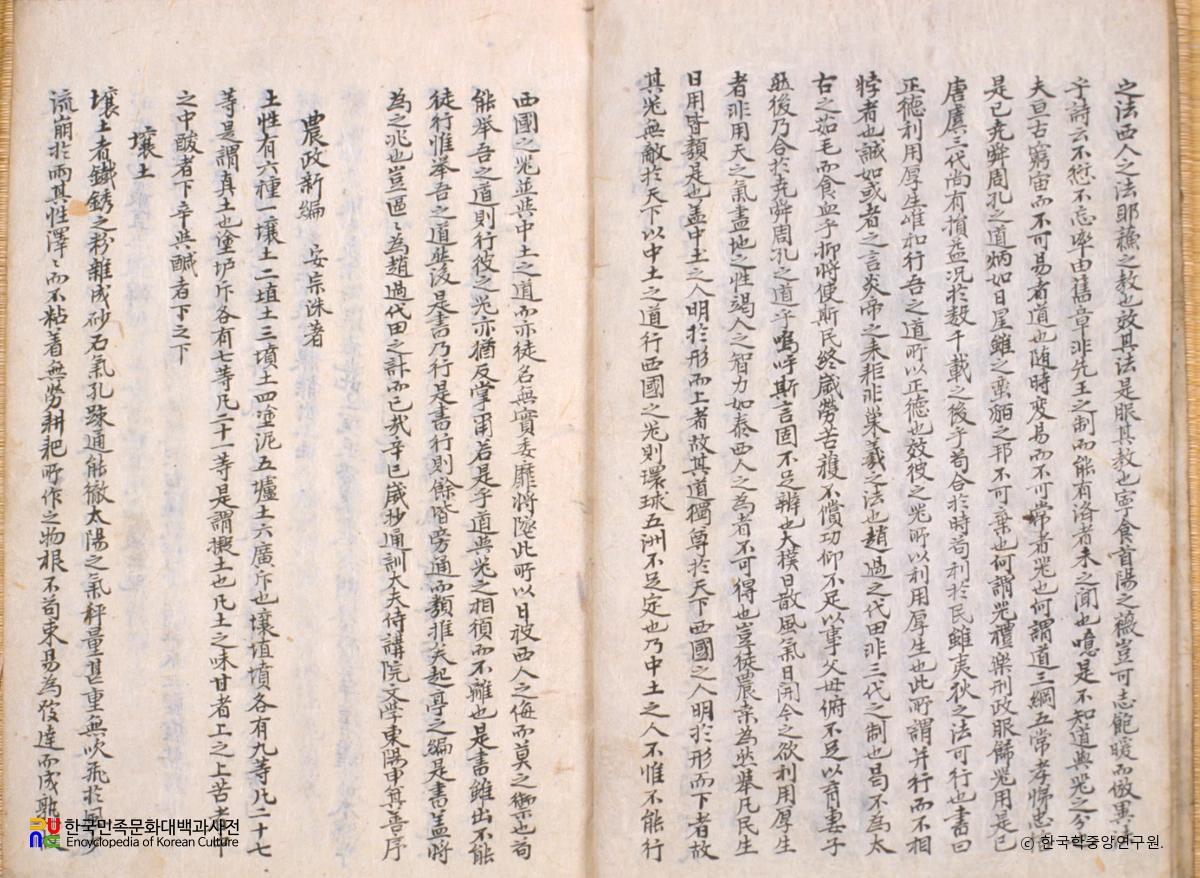 之法西人之法耶蘇之教也效其法是服其教也寧食首陽之薇豈可志飽暖而倣異
乎詩云不愆不忘率由舊章非先王之制而能有洛者未之聞也噫是不知道與器之分
夫亘古窮宙而不可易者道也随時変易而不可常者器也何謂道三綱五常孝悌忠
是已堯舜周孔之道炳如日星雖之蛮貊之邦不可棄也何謂器禮樂刑政服飾器用是已
唐虞三代尚有損益况於数千載之後乎苟合於時苟利於民雖夷狄之法可行也書曰
正德利用厚生惟和行吾之道所以正德也效彼之器所以利用厚生也此所謂并行而不相
悖者也誠如或者之言炎帝之耒耟非巣羲之法也趙過之代田非三代之制也曷不為太
古之茹毛而食血乎抑將使斯民終歲勞苦穫不償功仰不足以事父母俯不足以育妻子
然後乃合於堯舜周孔之道乎嗚呼斯言固不足辨也大樸日散風氣日開今之欲利用厚生
者非用天之氣盡地之性竭人之智力如泰西人之為者不可得也豈徒農業為然舉凡民生
日用皆類是也盖中土之人明於形而上者故其道獨尊於天下西國之人明於形而下者故
其器無敵於天下以中土之道行西國之器則環球五洲不足定也乃中土之人不惟不能行
西國之器並與中土之道而亦徒名無實委靡將墜此所以日被西人之侮而莫之禦也苟
能舉吾之道則行彼之器亦猶反掌甯若是乎道與器之相須而不離也是書雖出不能
徒行惟舉吾之道然後是書乃行是書行則餘皆旁通而類推矣起亭之編是書盖將
為之兆也豈區〻為趙過代田之計而已哉辛巳歲抄通訓大夫侍講院文學東陽申箕善序
農政新編　安宗洙著
土性有六種一壤土二埴土三墳土四塗泥五壚土六廣斥也壤埴墳各有九等凡二十七
等是謂真土也塗垆斥各有七等凡二十一等是謂擬土也凡土之味甘者上之上苦者中
之中酸者下辛與鹹者下之下
壤土
壤土者鐵銹之粉雜成砂石氣孔踈通能徹太陽之氣秤量甚重無吹飛於
流崩於雨其性澤〻而不粘着無勞耕耙所作之物根不苟束易為發達而成
한국민족문화대백과사전
Encyclopedia of Korean Culture
ⓒ 한국학중앙연구원.